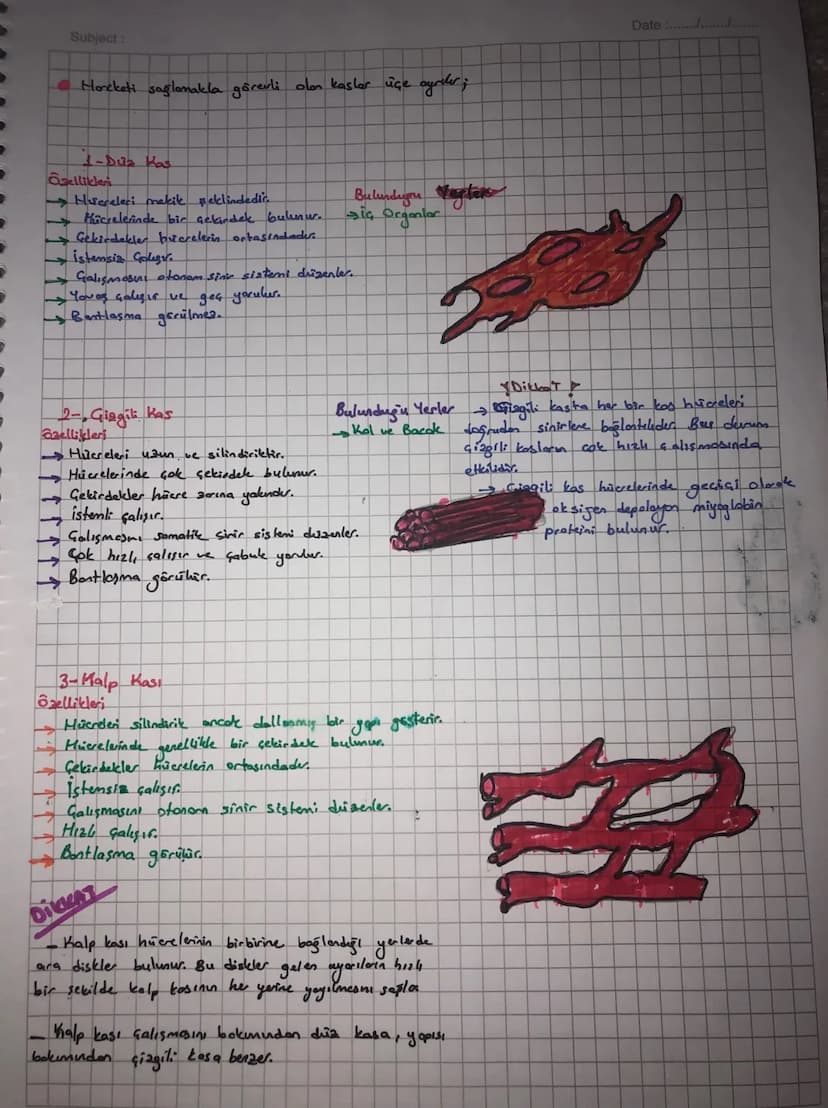 Subject :
Date :......./......./.......
Hareketi sağlamakla görevli olan kaslar üçe ayrılır;
1-Düz Kas
Özellikleri
→ Hücreleri mekik şeklindedir.
→ Hücrelerinde bir çekirdek bulunur.
→ Çekirdekler hücrelerin ortasındadır.
→ İstemsiz Çalışır.
→ Çalışmasını otonom sinir sistemi düzenler.
→ Yavaş çalışır ve geç yorulur.
→ Bantlaşma görülmez.
Bulunduğu Yerler
→ İç Organlar
2-, Çizgili Kas
Özellikleri
→ Hücreleri uzun ve silindiriktir.
→ Hücrelerinde çok çekirdek bulunur.
→ Çekirdekler hücre zarına yakındır.
→ İstemli çalışır.
→ Çalışmasını somatik sinir sistemi düzenler.
→ Çok hızlı çalışır ve çabuk yorulur.
→ Bantlaşma görülür.
Bulunduğu Yerler
→ Kol ve Bacak
! Dikkat !
→ Çizgili kasta her bir kas hücreleri
doğrudan sinirlere bağlantılıdır. Bu durum
çizgili kasların çok hızlı çalışmasında
etkilidir.
→ Çizgili kas hücrelerinde geçici olarak
oksijen depolayan miyoglobin
proteini bulunur.
3-Kalp Kası
Özellikleri
→ Hücreleri silindirik ancak dallanmış bir yapı gösterir.
→ Hücrelerinde genellikle bir çekirdek bulunur.
→ Çekirdekler hücrelerin ortasındadır.
→ İstemsiz çalışır.
→ Çalışmasını otonom sinir sistemi düzenler.
→ Hızlı çalışır.
→ Bantlaşma görülür.
DİKKAT
- Kalp kası hücrelerinin birbirine bağlandığı yerlerde
ara diskler bulunur. Bu diskler gelen uyarıların hızlı
bir şekilde kalp kasının her yerine yayılmasını sağlar
- Kalp kası çalışmasını bakımından düz kasa, yapısı
bakımından çizgili kasa benzer.